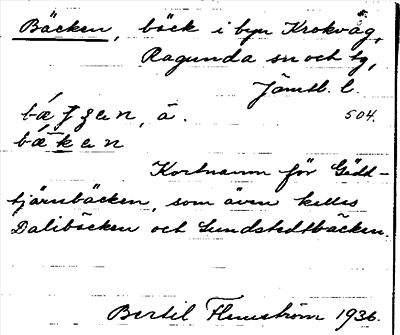 Bäcken, bäck i byn Krokvåg,
Ragunda sn och tg,
Jämtl. l.
504.
bäken
Kortnamn för Gädd-
tjärnbäcken, som även kallas
Dalibäcken och Lundstedtbäcken.
Bertil Flemström 1936.